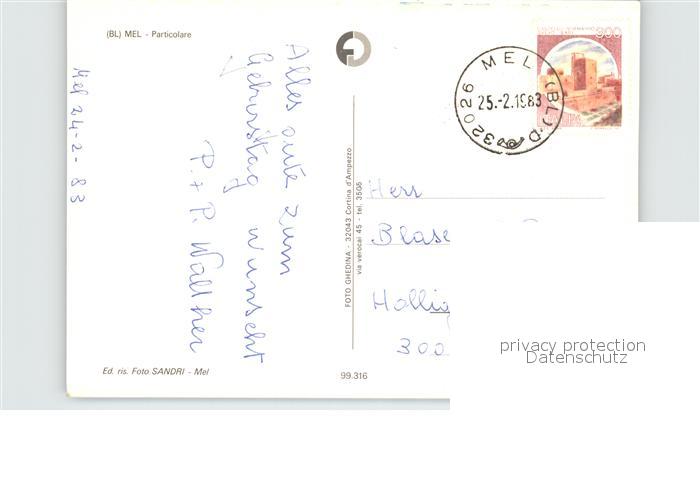 (BL) MEL - Particolare
Mel 24-2-83
Alles Gute zum
Geburtstag wünscht
P. + P. Walther
Ed. ris. Foto SANDRI - Mel
FOTO GHEDINA - 32043 Cortina d'Ampezzo
via verocai 45 - tel. 3505
99.316
32026 MEL (BL) D
25.-2.1983
300
Herr
Blase
Hollig
300
privacy protection
Datenschutz